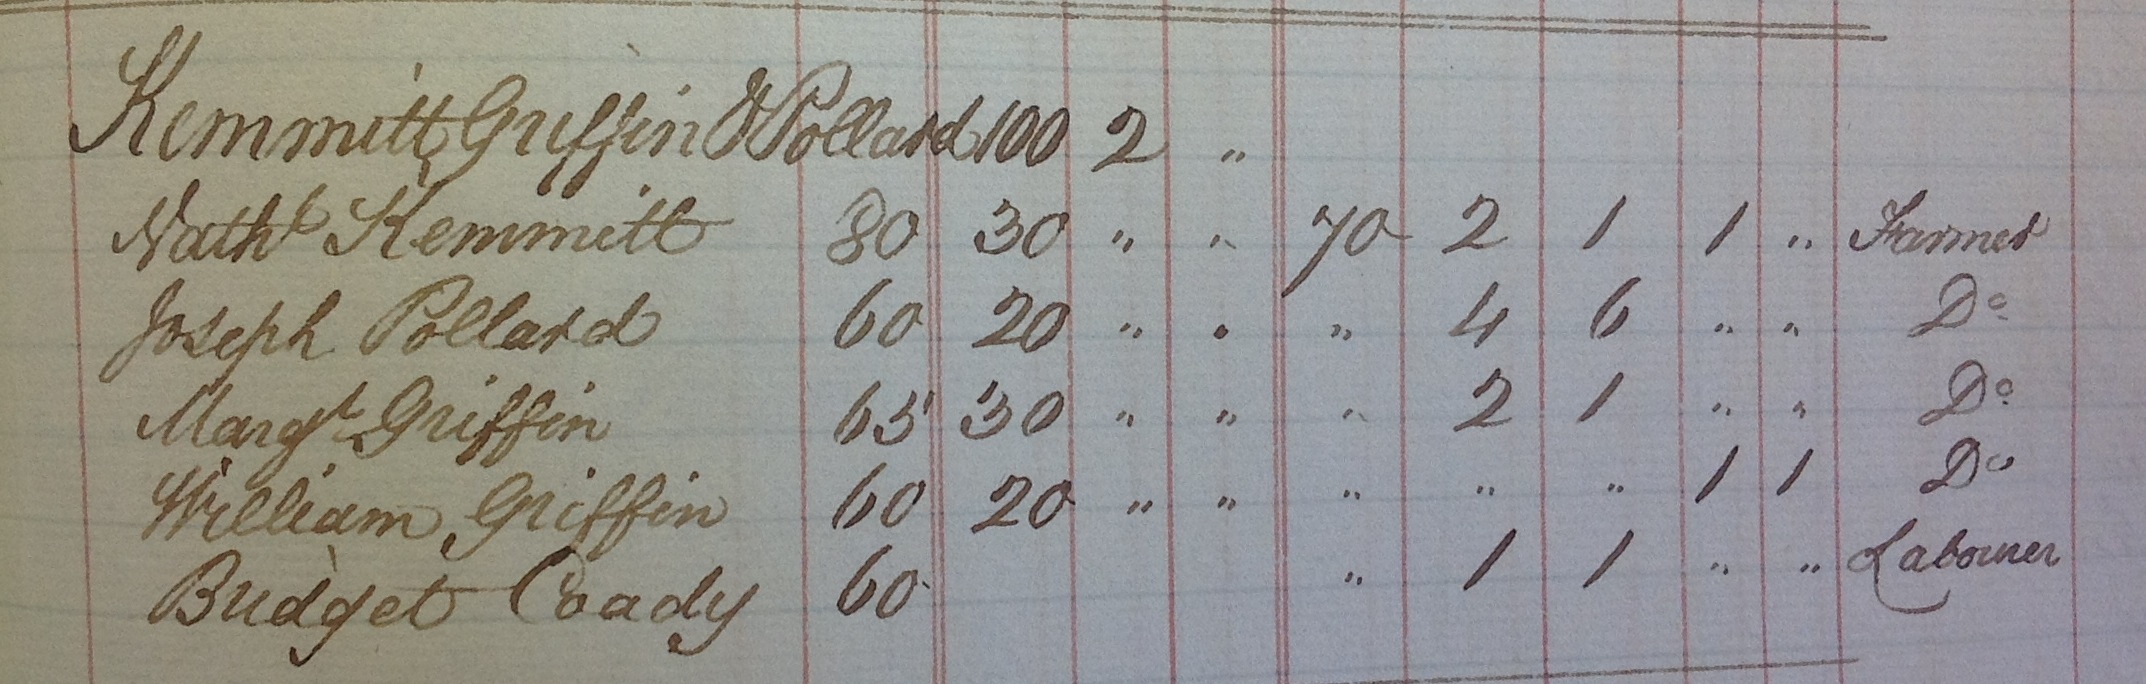 Kemmitt Griffin & Pollard 100 2 "
Nathl Kemmitt 80 30 " " 70 2 1 1 " Farmer
Joseph Pollard 60 20 " " " 4 6 " " Do
Margt Griffin 65 30 " " " 2 1 " " Do
William Griffin 60 20 " " " " " 1 1 Do
Bridget Coady 60 " 1 1 " " Labourer